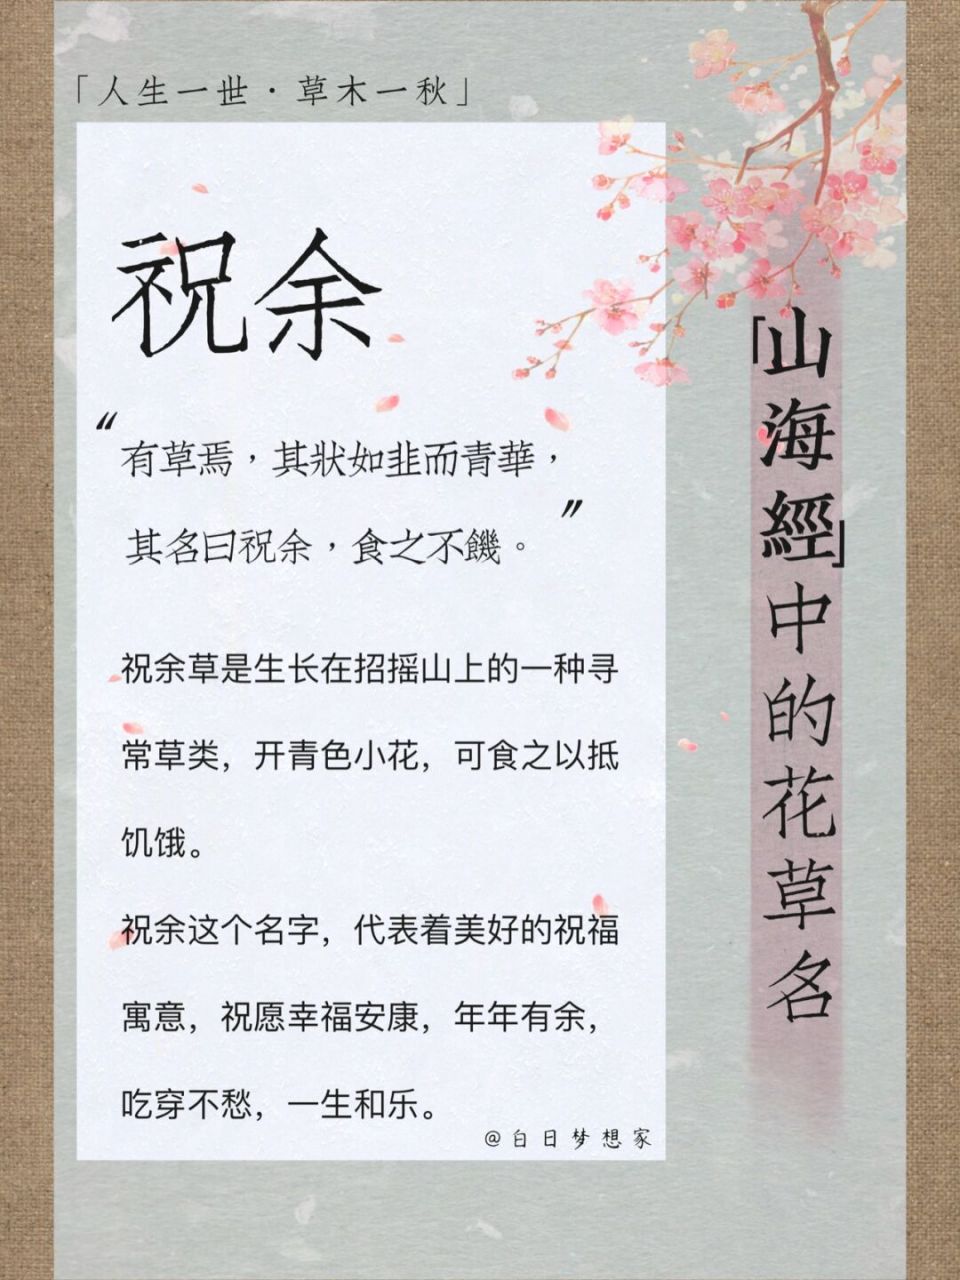 「人生一世·草木一秋」
祝余
“有草焉，其狀如韭而青華，
其名曰祝余，食之不饑。”
祝余草是生长在招摇山上的一种寻
常草类，开青色小花，可食之以抵
饥饿。
祝余这个名字，代表着美好的祝福
寓意，祝愿幸福安康，年年有余，
吃穿不愁，一生和乐。
@白日梦想家
「山海經」中的花草名